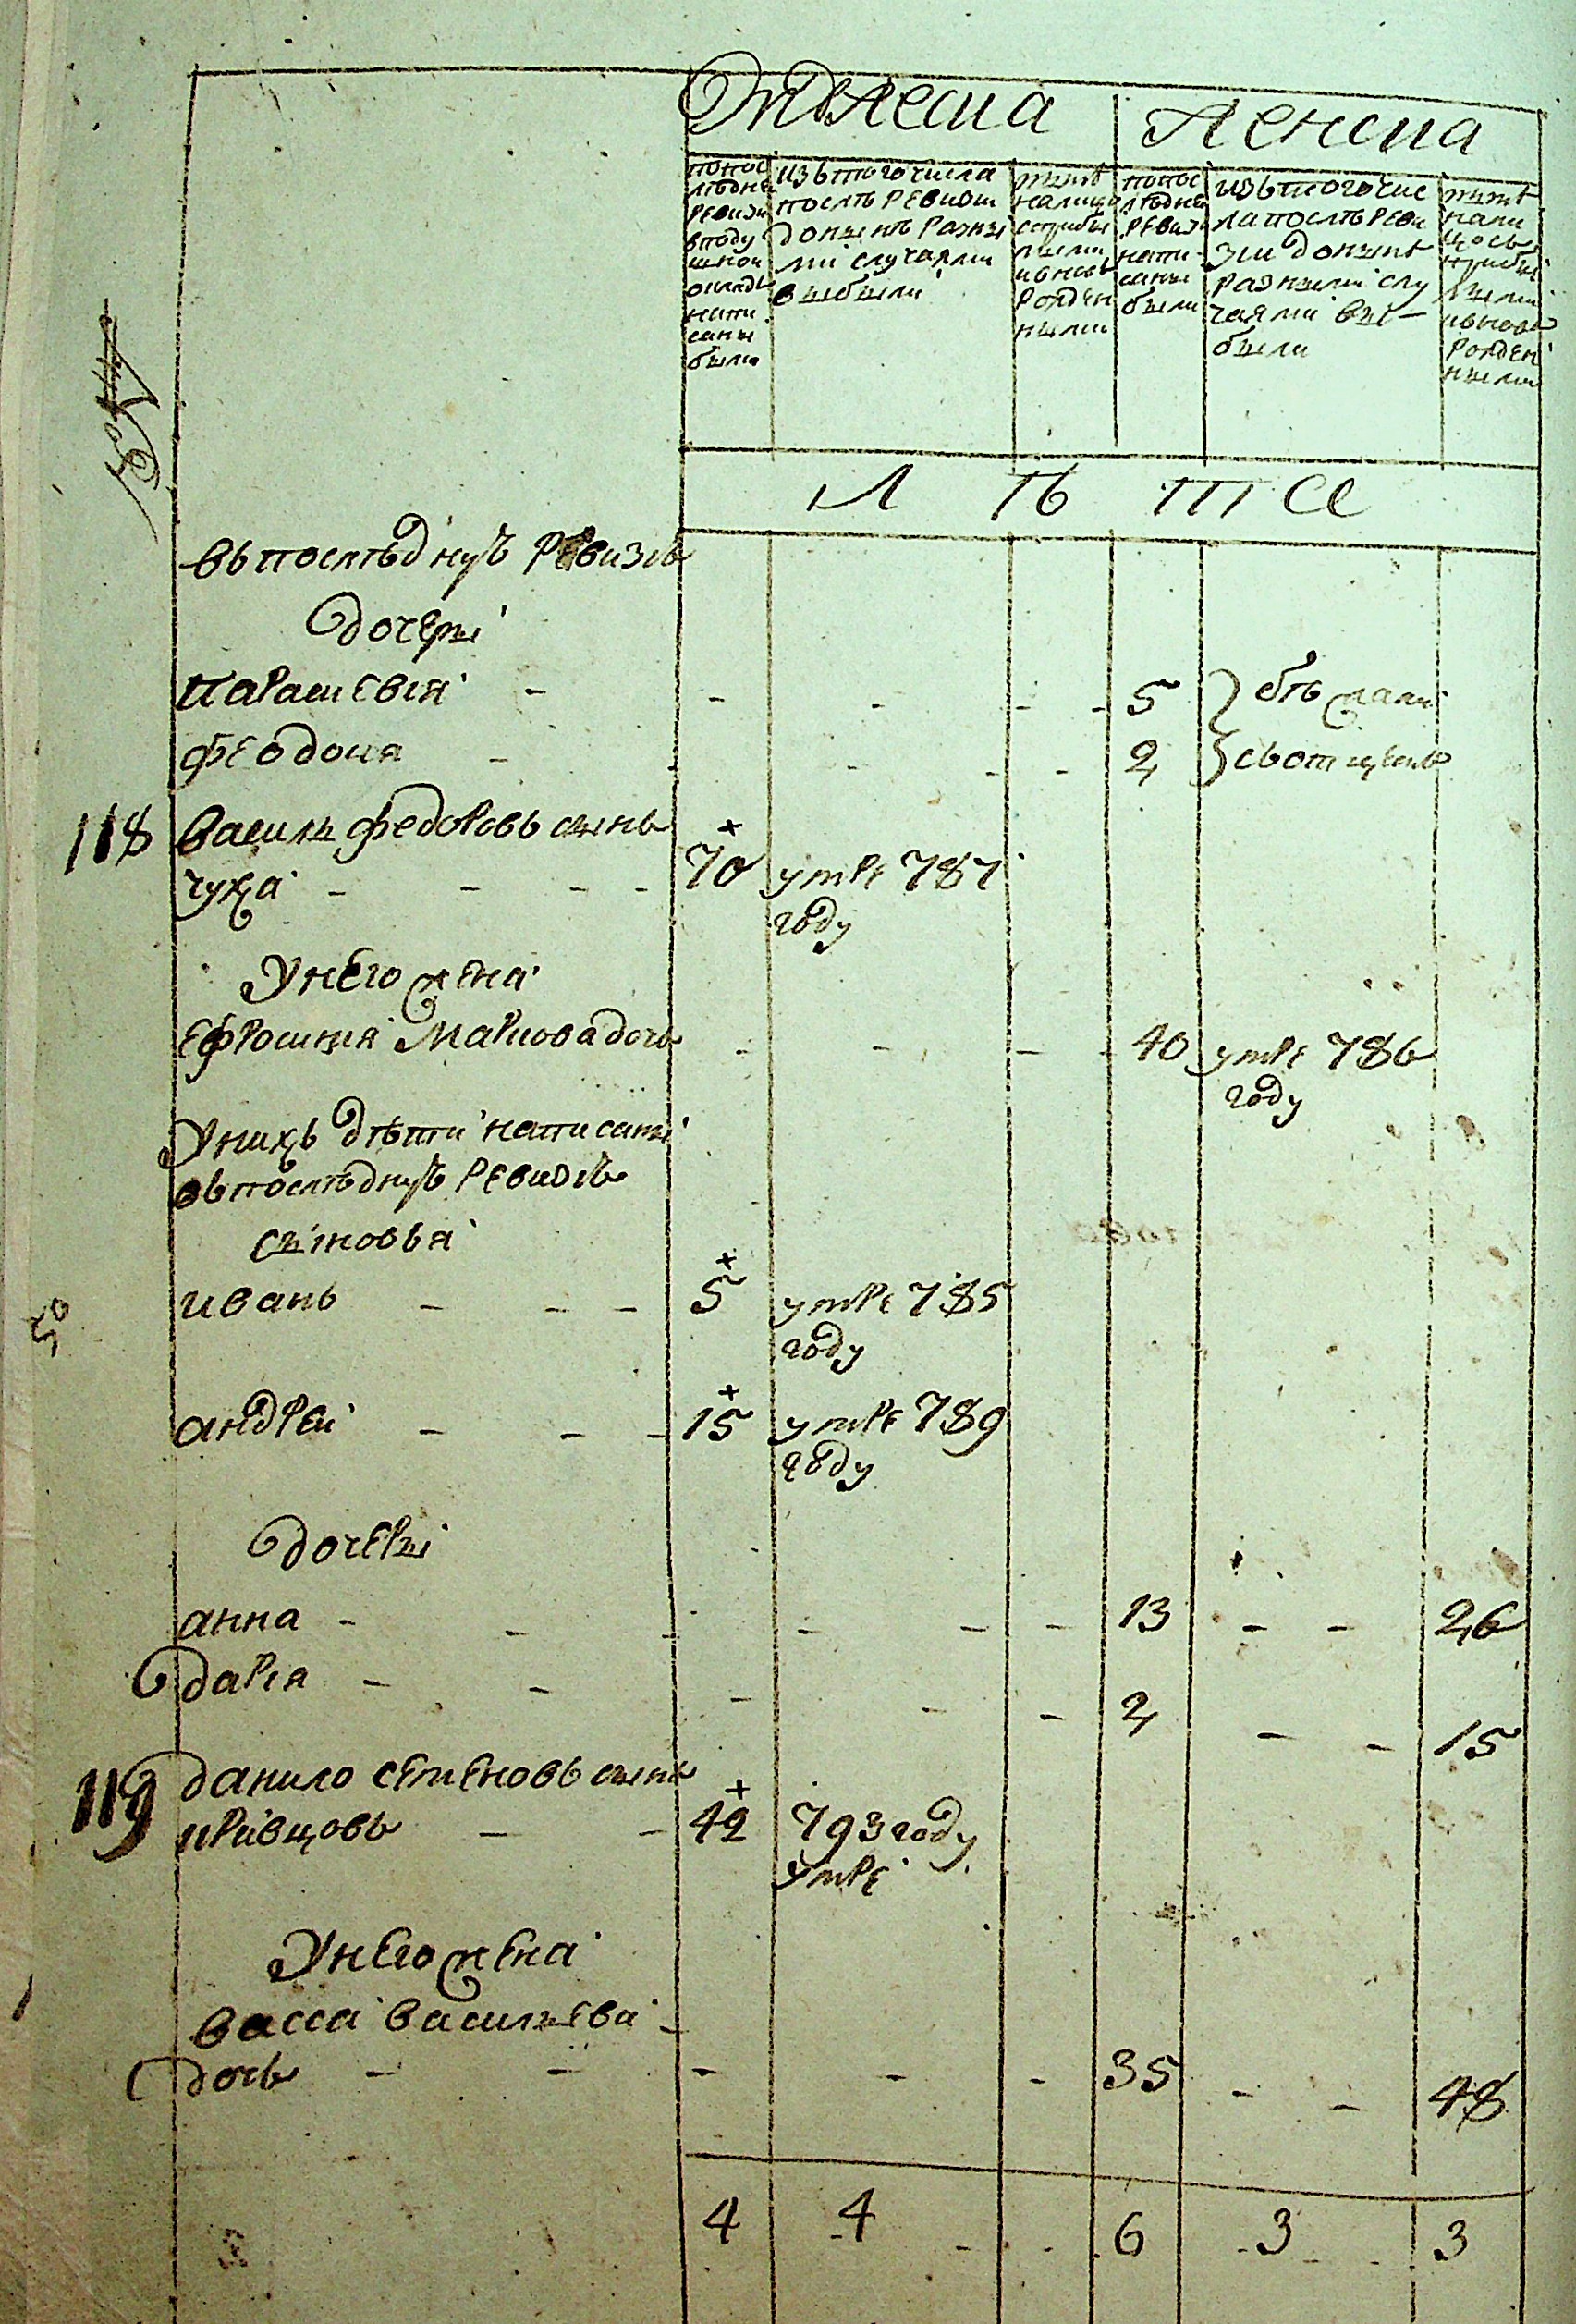 Мужеска
Женска
попос
лѣдне
ревизи
вподу
шной
окладъ
напи
саны
были
изътогочисла
послѣревизи
донынѣ разны
ми случаями
выбыли
нынѣ
налицо
сприбы
лыми
ивновь
рожден
ными
попос
лѣдне
ревизи
напи
саны
были
изътогочис
лапослѣреви
зіи донынѣ
разными слу
чаями вы
были
нынѣ
нали
цось
прибы
лыми
ивновь
рожден
ными
Л ѣ т а
въпослѣднуѣ ревизіѣ
дочери
параскевія - - - - - 5 } бѣжали
феодосия - - - - - 2 } съотцемъ
118 василѣ федоровъ сынъ
чуха - - - - 70 умре 787
году
Унего жена
ефросинія Маркова дочь - - - - 40 умре 786
году
Унихъ дѣти написаны
въпослѣднуѣ ревизіѣ
сыновья
иванъ - - - 5 умре 785
году
андрей - - - 15 умре 789
году
дочери
анна - - - - - - 13 - - 26
дарія - - - - - 2 - - 15
119 данило семеновъ сынъ
кривцовъ - - 42 793 году
умре
Унего жена
васса васильева -
дочь - - - - - 35 - - 48
4 4 - - 6 - 3 - - 3